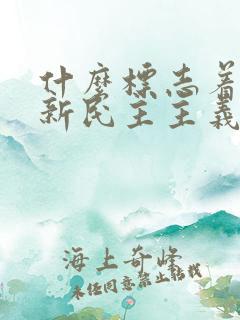 什麼標志着
新民主主義
海上奇峰
未经同意禁止转载